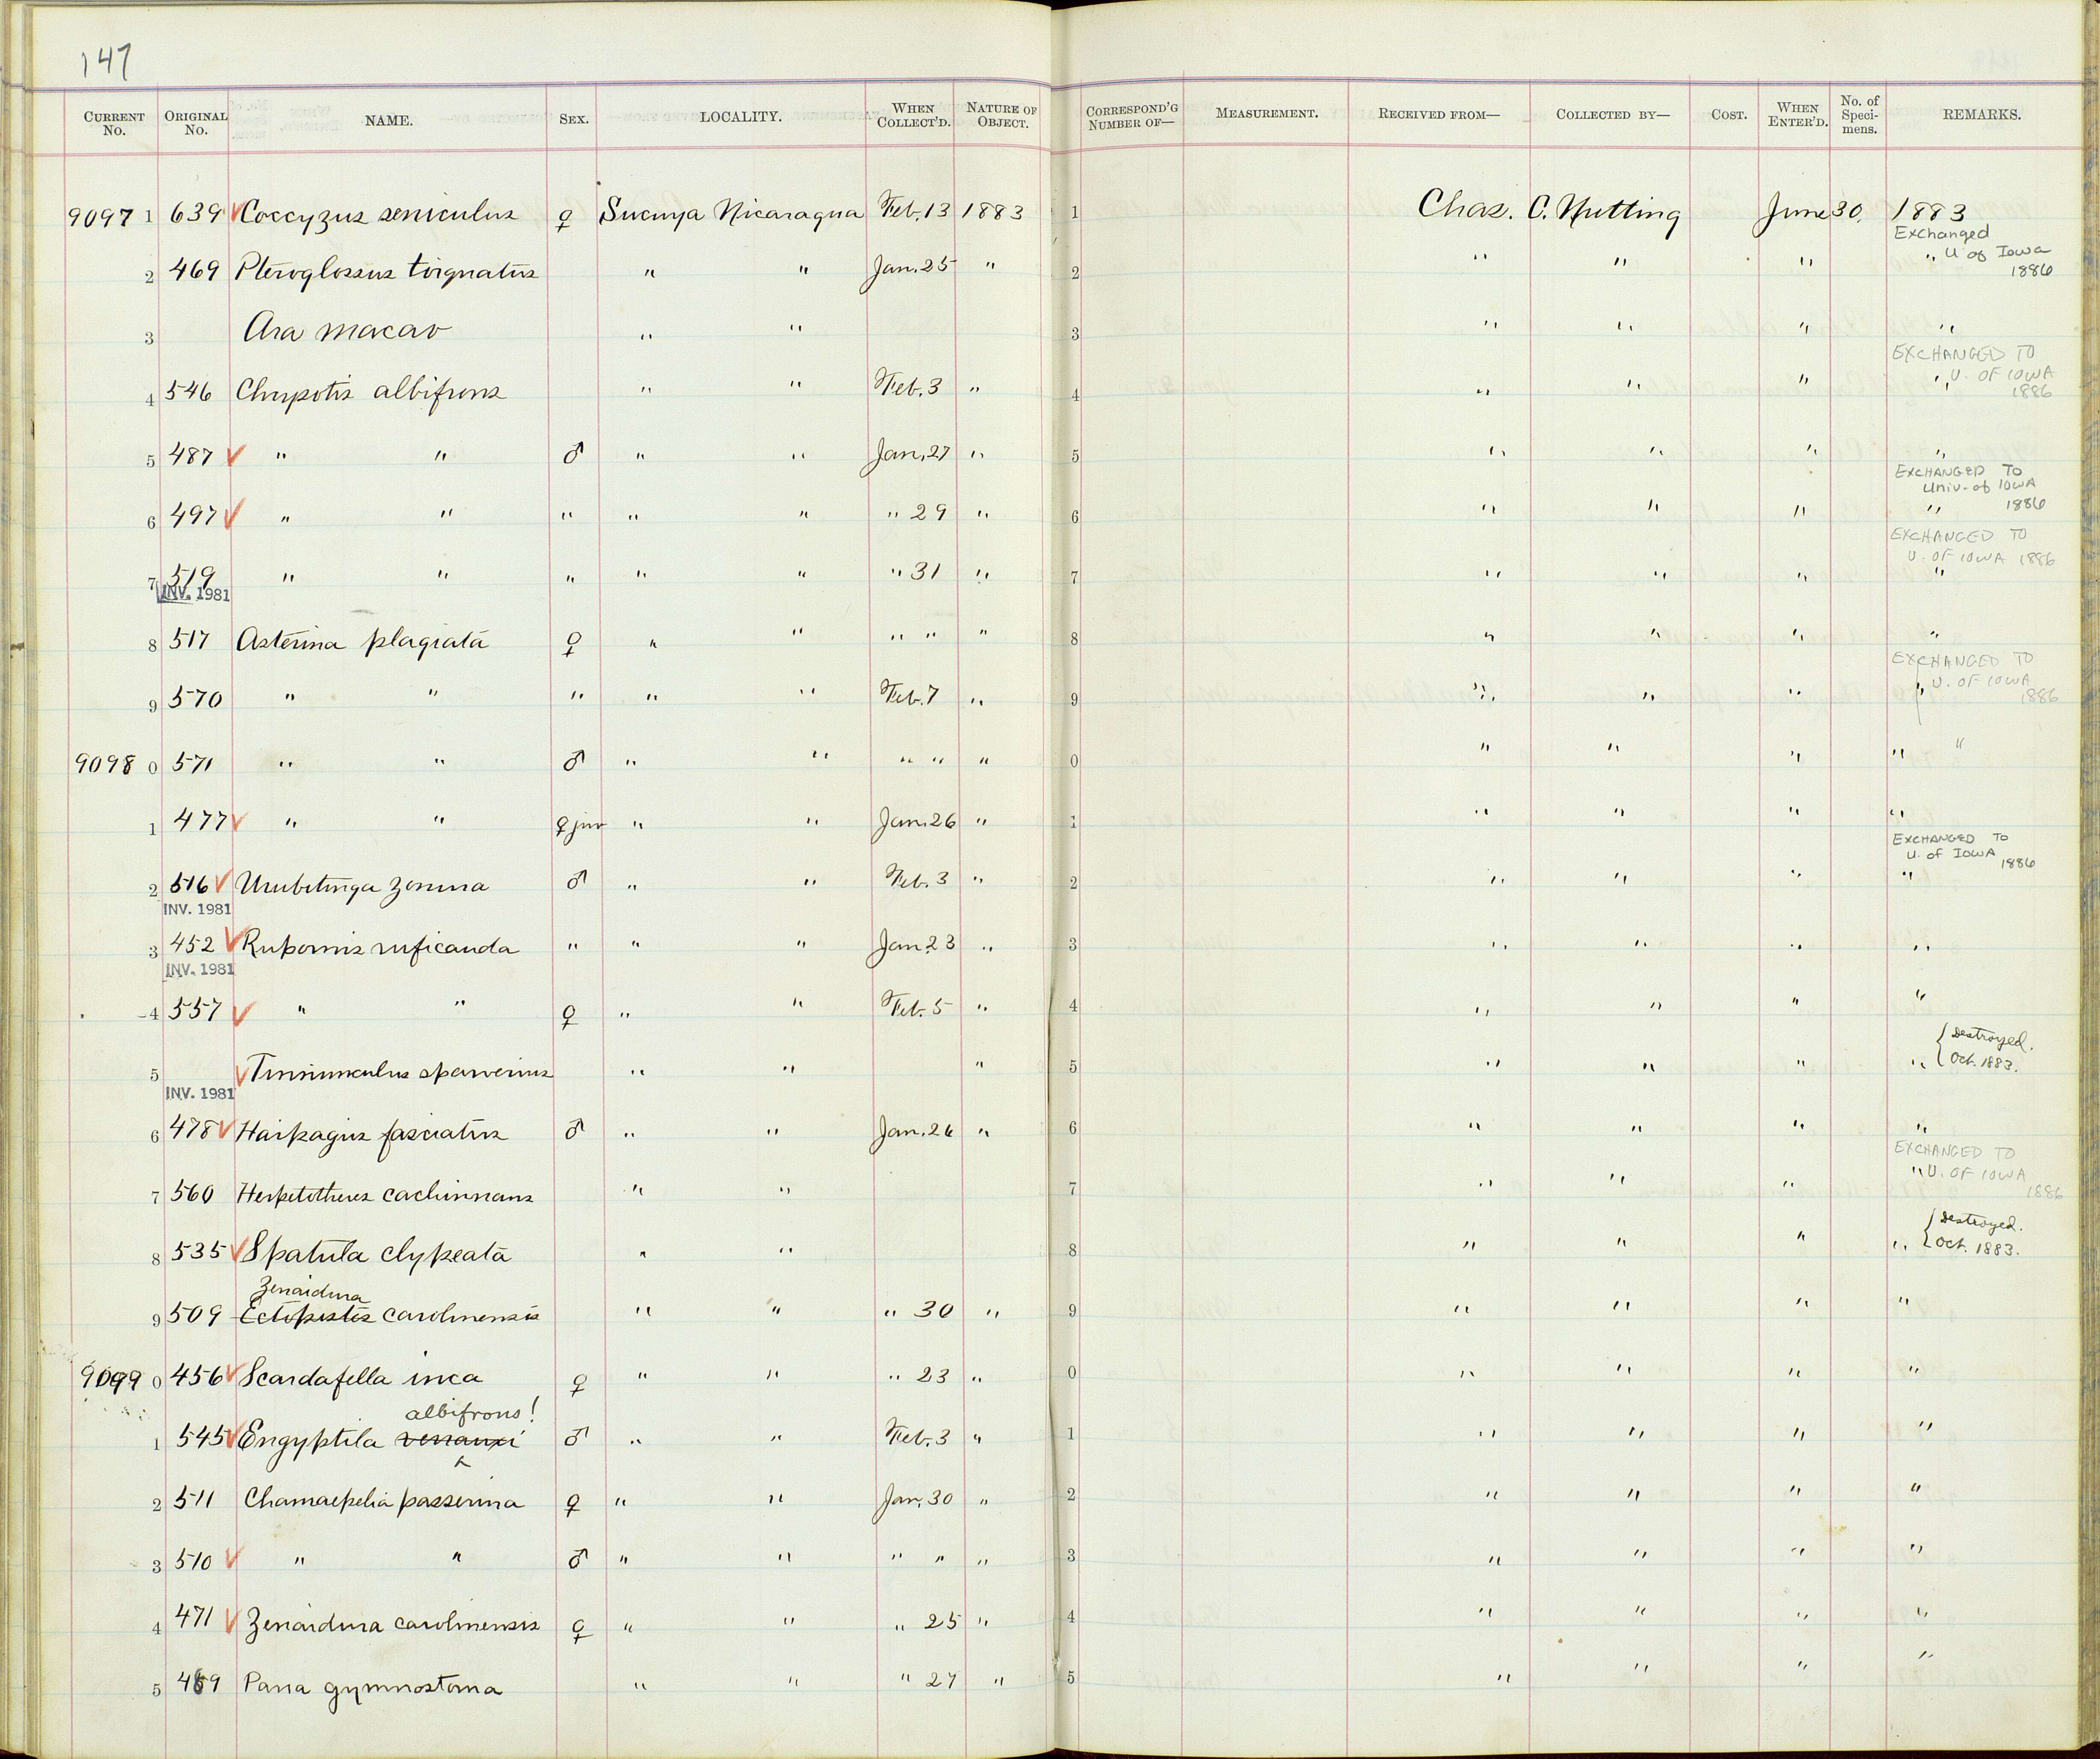 147
CURRENT No. ORIGINAL No. NAME. SEX. LOCALITY. WHEN COLLECT'D. NATURE OF OBJECT. CORRESPOND'G NUMBER OF— MEASUREMENT. RECEIVED FROM— COLLECTED BY— COST. WHEN ENTER'D. No. of Speci-mens. REMARKS.
9097 1 639 ✓ Coccyzus seniculus ♀ Sucuya Nicaragua Feb. 13 1883 1 Chas. C. Nutting June 30, 1883
Exchanged
2 469 Pteroglossus torquatus " " Jan. 25 " 2 " " " " U of Iowa
1886
3 Ara macao " " 3 " " " "
EXCHANGED TO
4 546 Chrysotis albifrons " " Feb. 3 " 4 " " " " U. OF IOWA
1886
5 487 ✓ " " ♂ " " Jan. 27 " 5 " " " "
EXCHANGED TO
Univ. of IOWA
6 497 ✓ " " " " " " 29 " 6 " " " " 1886
EXCHANGED TO
U. OF IOWA 1886
7 519 " " " " " " 31 " 7 " " " "
INV. 1981
8 517 Asterina plagiata ♀ " " " " " 8 " " " "
EXCHANGED TO
9 570 " " " " " Feb. 7 " 9 " " " " U. OF IOWA
1886
9098 0 571 " " ♂ " " " " " 0 " " " " "
1 477 ✓ " " ♀ juv " " Jan. 26 " 1 " " " "
EXCHANGED TO
U. of IOWA 1886
2 516 ✓ Urubitinga zonura ♂ " " Feb. 3 " 2 " " " "
INV. 1981
3 452 ✓ Rupornis ruficauda " " " Jan. 23 " 3 " " " "
INV. 1981
4 557 ✓ " " ♀ " " Feb. 5 " 4 " " " "
Destroyed.
5 ✓ Tinnunculus sparverius " " " 5 " " " " Oct. 1883.
INV. 1981
6 478 ✓ Harpagus fasciatus ♂ " " Jan. 26 " 6 " " " "
EXCHANGED TO
7 560 Herpetotheres cachinnans " " 7 " " " " U. OF IOWA
1886
Destroyed.
8 535 ✓ Spatula clypeata " " 8 " " " " Oct. 1883.
Zenaidura
9 509 Ectopistes carolinensis " " " 30 " 9 " " " "
9099 0 456 ✓ Scardafella inca ♀ " " " 23 " 0 " " " "
albifrons!
1 545 ✓ Engyptila verrauxi ♂ " " Feb. 3 " 1 " " " "
2 511 Chamaepelia passerina ♀ " " Jan. 30 " 2 " " " "
3 510 ✓ " " ♂ " " " " " 3 " " " "
4 471 ✓ Zenaidura carolinensis ♀ " " " 25 " 4 " " " "
5 489 Parra gymnostoma " " " 27 " 5 " " " "